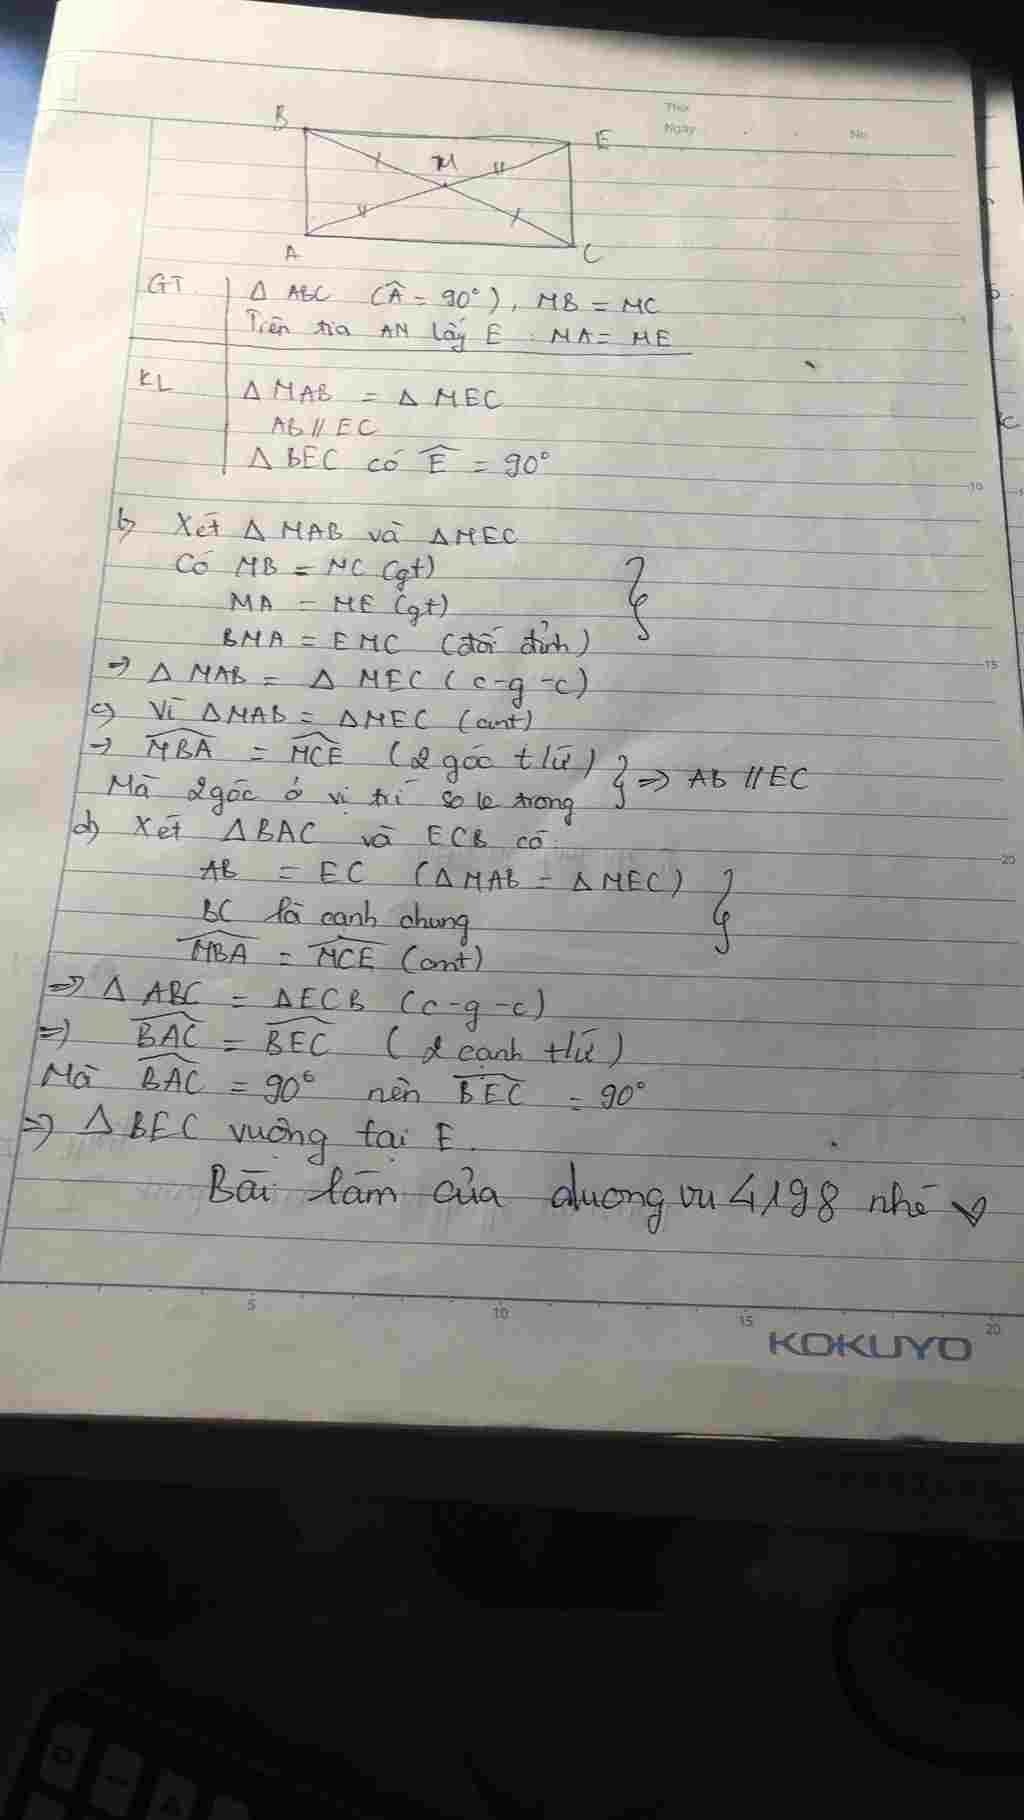 Thứ
Ngày . .
No.
B
E
M
A
C
GT. Δ ABC (Â = 90°), MB = MC
Trên tia AM lấy E : MA = ME
KL Δ MAB = Δ MEC
AB // EC
Δ BEC có Ê = 90°
b) Xét Δ MAB và ΔMEC
Có MB = MC (gt)
MA = ME (gt)
BMA = EMC (đối đỉnh)
=> Δ MAB = Δ MEC (c-g-c)
c) Vì ΔMAB = ΔMEC (cmt)
-> MBA = MCE (2 góc t/ứ)
Mà 2 góc ở vị trí so le trong } => AB // EC
d) Xét ΔBAC và ECB có
AB = EC (ΔMAB = ΔMEC)
BC là cạnh chung
MBA = MCE (cmt)
=> Δ ABC = ΔECB (c-g-c)
=> BAC = BEC (2 cạnh t/ứ)
Mà BAC = 90° nên BEC = 90°
=> Δ BEC vuông tại E.
Bài làm của duongvu4198 nhé ♡
5 10 15 20
KOKUYO
10
15
20